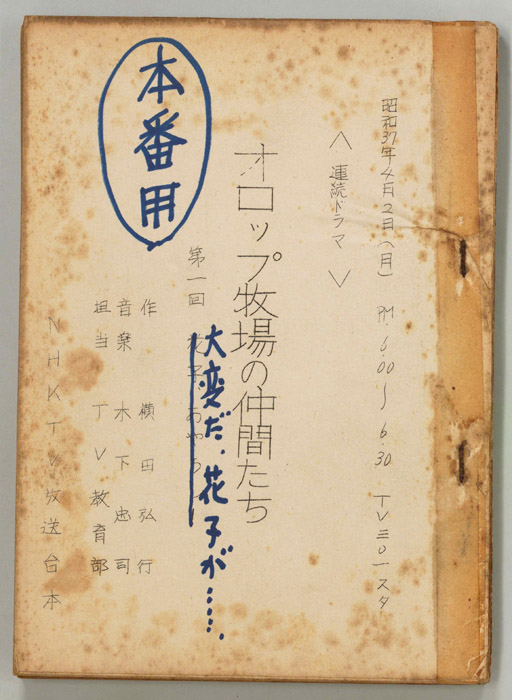 昭和37年4月2日(月) PM.6.00〜6.30 TV三〇一スタ
〈連続ドラマ〉
オロップ牧場の仲間たち
本番用
第一回
大変だ、花子が……
作 横田弘行
音楽 木下忠司
担当 TV教育部
NHKTV放送台本